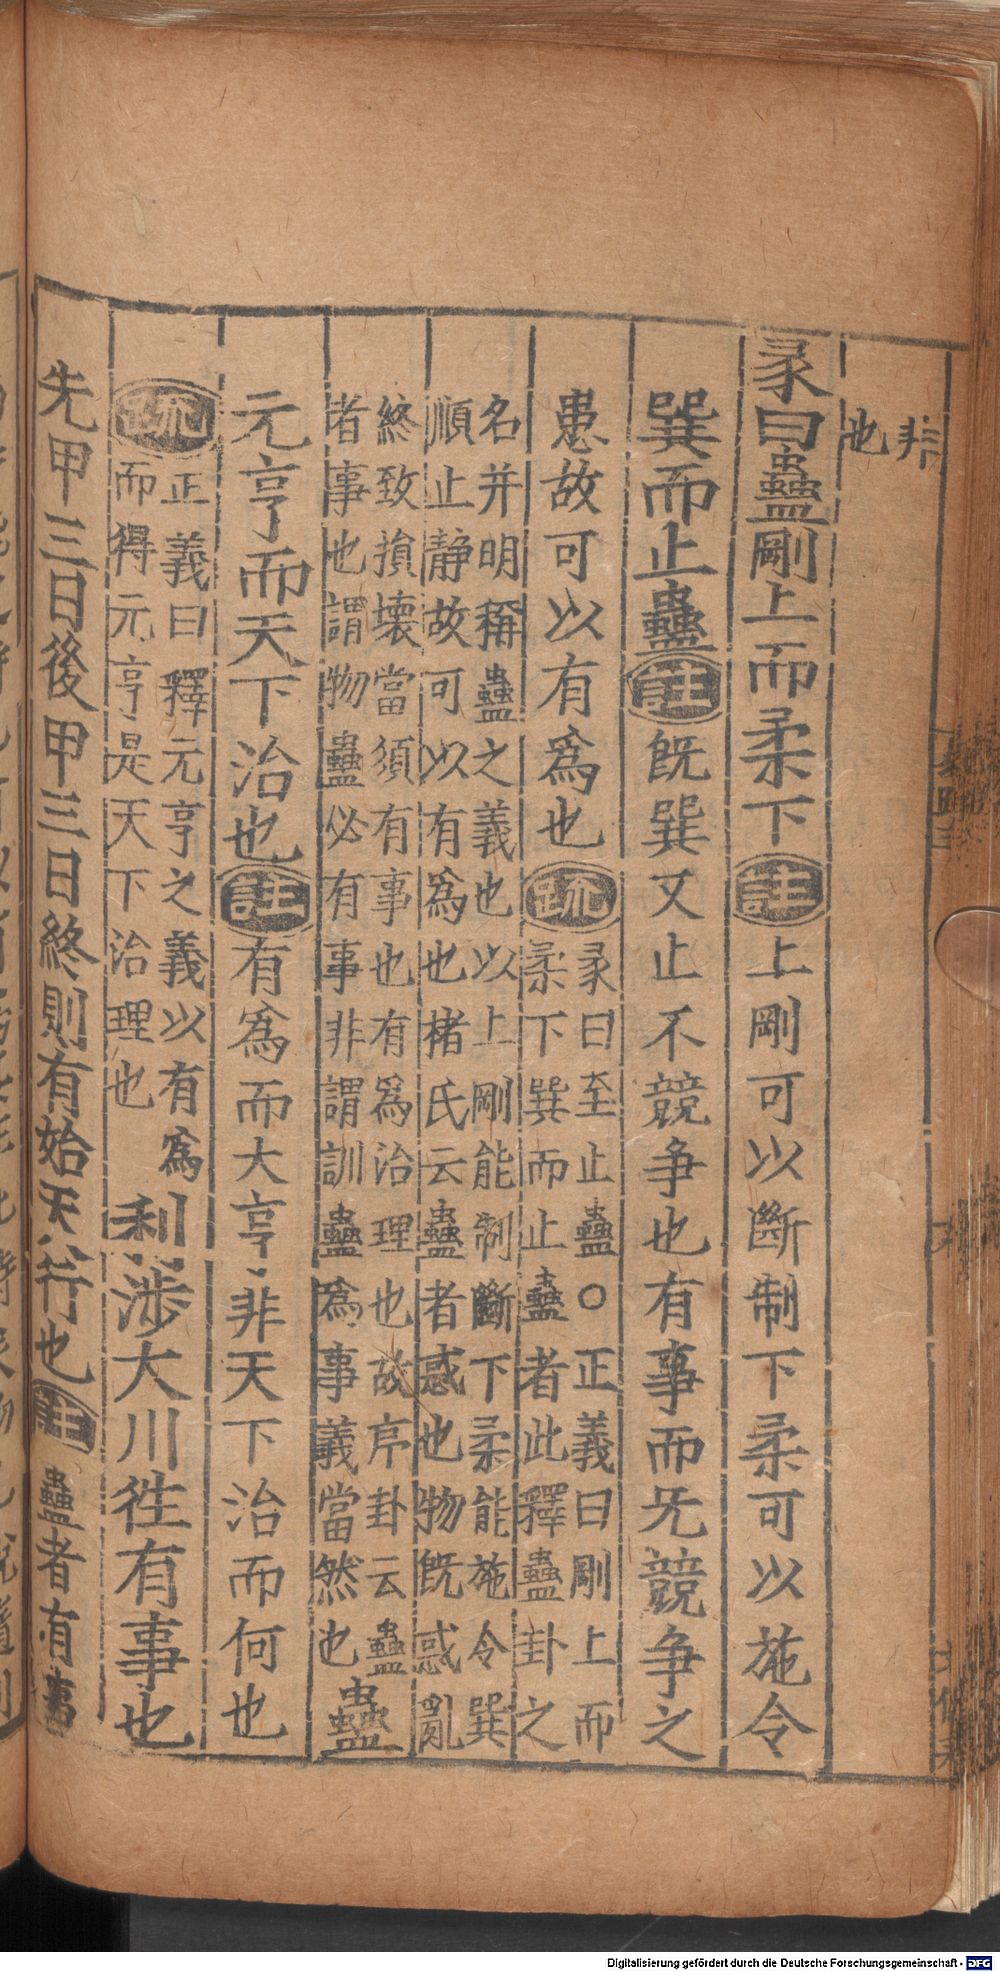 非
也
彖曰蠱剛上而柔下註上剛可以斷制下柔可以施令
巽而止蠱註既巽又止不競争也有事而无競争之
患故可以有為也疏
彖曰至止蠱○正義曰剛上而
柔下巽而止蠱者此釋蠱卦之
名并明稱蠱之義也以上剛能制斷下柔能施令巽
順止静故可以有為也楮氏云蠱者惑也物既惑亂
終致損壞當須有事也有為治理也故序卦云蠱
者事也謂物蠱必有事事非謂訓蠱為事義當然也蠱
元亨而天下治也註有為而大亨非天下治而何也
疏
正義曰釋元亨之義以有為
而得元亨是天下治理也
利涉大川徃有事也
先甲三日後甲三日終則有始天行也註蠱者有事
Digitalisierung gefördert durch die Deutsche Forschungsgemeinschaft - DFG